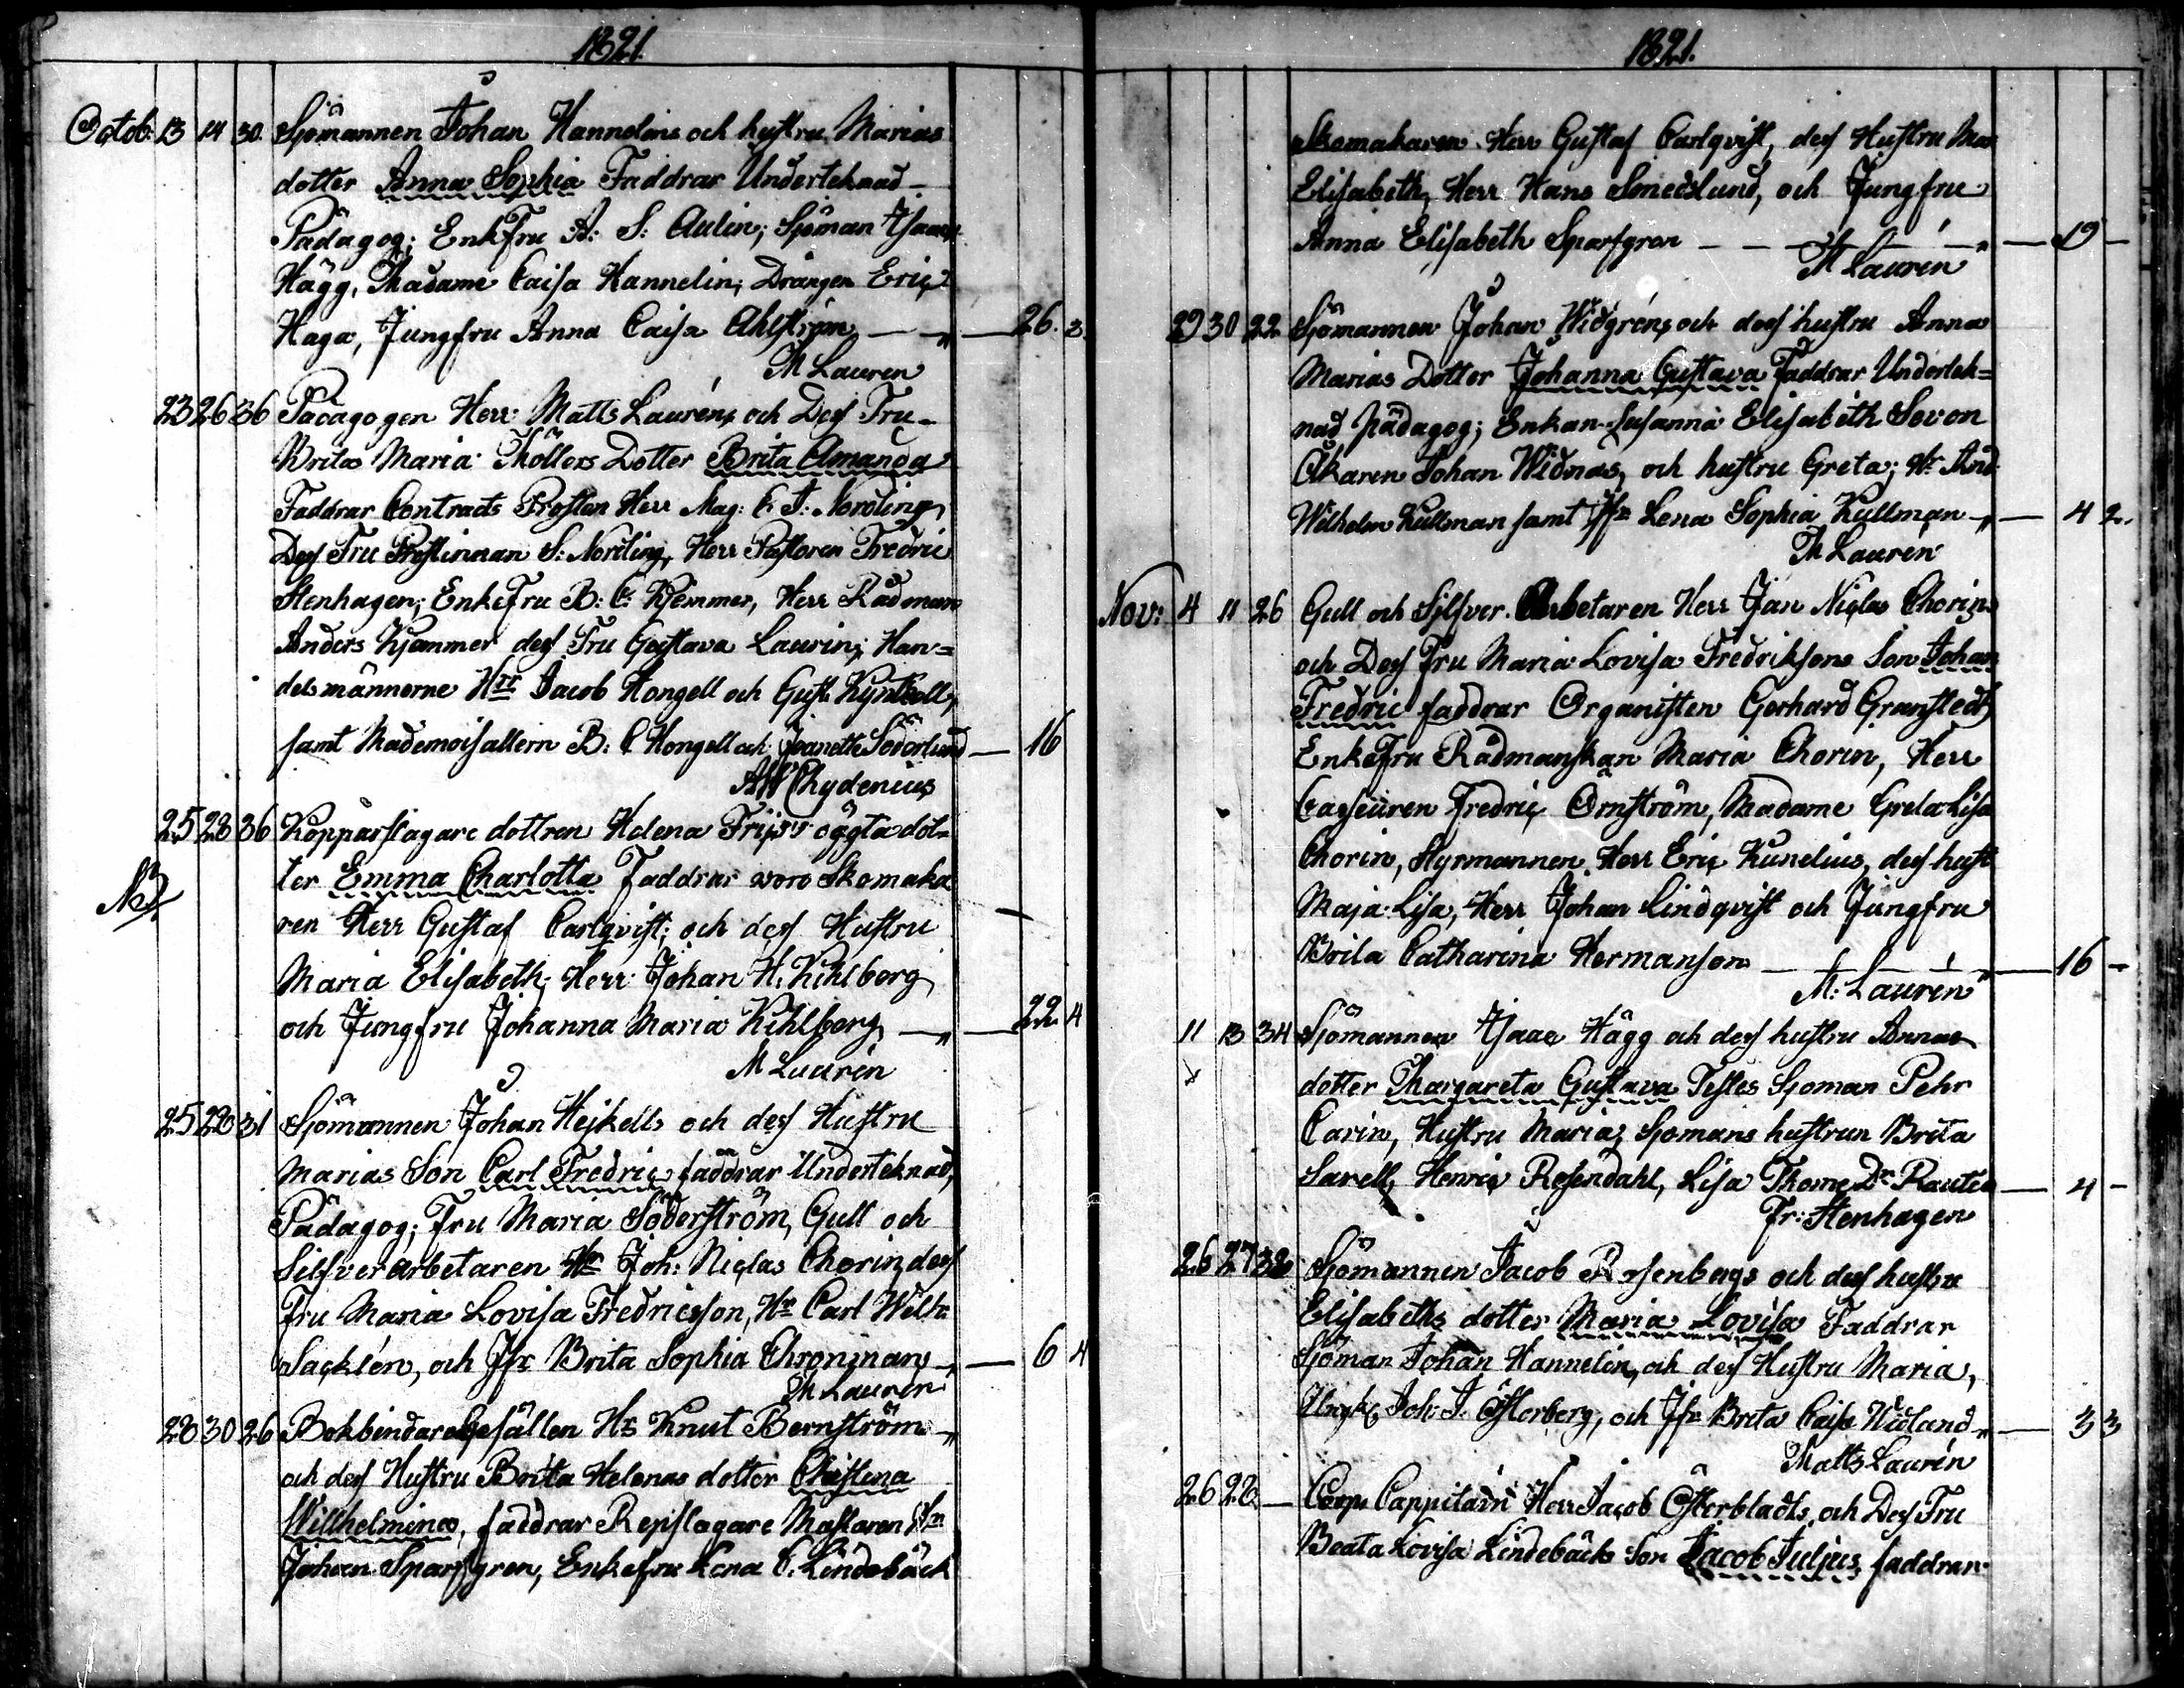 1821.
Octob: 13 14 30. Sjömannen Johan Hannelins och hustru Marias
dotter Anna Sophia Faddrar Underteknad
Pädagog; EnkFru A: S: Aulin; Sjöman Isaac
Hägg, Madame Caisa Hannelin; Drängen Eric
Haga, Jungfru Anna Caisa Ahlström — „ — 26. 3.
M Lauren
23 26 36 Pädagogen Herr Matts Lauréns och Dess Fru
Britas Maria Möllers Dotter Brita Amanda
Faddrar Contracts Prosten Herr Mag: C J: Nordling,
Dess Fru Prostinnan S: Nordling, Herr Pastoren Fredric
Stenhagen; EnkeFru B: C: Kjemmer, Herr Rådman
Anders Kjemmer dess Fru Gustava Laurin; Han=
delsmännerne Hrr Jacob Hongell och Gust: Kyntzell,
samt Mademoisallern B: C Hongell och Jeanette Söderlund — 16
AW Chydenius
25 28 36 Kopparslagare dottren Helena Frijs's oägta dot-
ter Emma Charlotta Faddrar woro Skomaka
NB
ren Herr Gustaf Carlqvist; och dess Hustru
Maria Elisabeth; Herr Johan H. Kihlberg
och Jungfru Johanna Maria Kihlberg — „ — 22 4
M Laurén
25 28 31 Sjömannen Johan Hejkells och dess Hustru
Marias Son Carl Fredric faddrar Underteknad,
Pädagog; Fru Maria Söderström, Gull och
Silfverarbetaren Hr Joh: Niclas Chorin, dess
Fru Maria Lovisa Fredricsson, Hr Carl Wilh:
Sacklén, och Jfr Brita Sophia Chroninan — 6 4
M Laurén
28 30 26 BokbindareGesällen Hr Knut Bernström „
och dess Hustru Brita Helenas dotter Christina
Willhelmina, faddrar Repslagare Mästaren Hr
Johan Sparfgren, Enkefru Lena C. Lindebäck
1821.
Skomakaren Herr Gustaf Carlqvist, dess Hustru Ma
Elisabeth, Herr Hans Smedslund, och Jungfru
Anna Elisabeth Sparfgren — — — — „ — 19 —
M Laurén
29 30 22 Sjömannen Johan Widgréns och dess hustru Anna
Marias Dotter Johanna Gustava Faddrar Undertek=
nad Pädagog; Enkan Susanna Elisabeth Sevon
Åkaren Johan Widnäs, och hustru Greta; Hr And:
Wilhelm Kullman samt Jfr Lena Sophia Kullman „ — 4 2.
M Laurén
Nov: 4 11 26 Gull och Silfver Arbetaren Herr Jan Niclas Chorins
och Dess Fru Maria Lovisa Fredriksons Son Johan
Fredric faddrar Organisten Gerhard Granstedt,
Enkefru Rådmanskan Maria Chorin, Herr
Casseuren Fredric Örnström, Madame Greta Lisa
Chorin, Styrmannen Herr Eric Kunelius, dess hust
Maja Lisa, Herr Johan Lindqvist och Jungfru
Brita Catharina Hermanson — — — „ — 16 —
M: Laurén
11 13 34 Sjömannen Isaac Hägg och dess hustru Annas
dotter Margareta Gustava Testes Sjöman Pehr
Carin, Hustru Maria, Sjomans hustrun Brita
Sarell, Henric Rosendahl, Lisa Thome Dr Rautio — 4 —
Fr: Stenhagen
26 27 32 Sjömannen Jacob Rosenbergs och dess hustru
Elisabeths dotter Maria Lovisa Faddrar
Sjöman Johan Hannelin, och dess Hustru Maria,
Ungk: Joh: J. Österberg, och Jfr Brita Caisa Widland „ — 3 3
Matts Laurén
26 28 — Cappitain Herr Jacob Österbladts, och Dess Fru
Beata Lovisa Lindebäcks Son Jacob Julius, faddrar